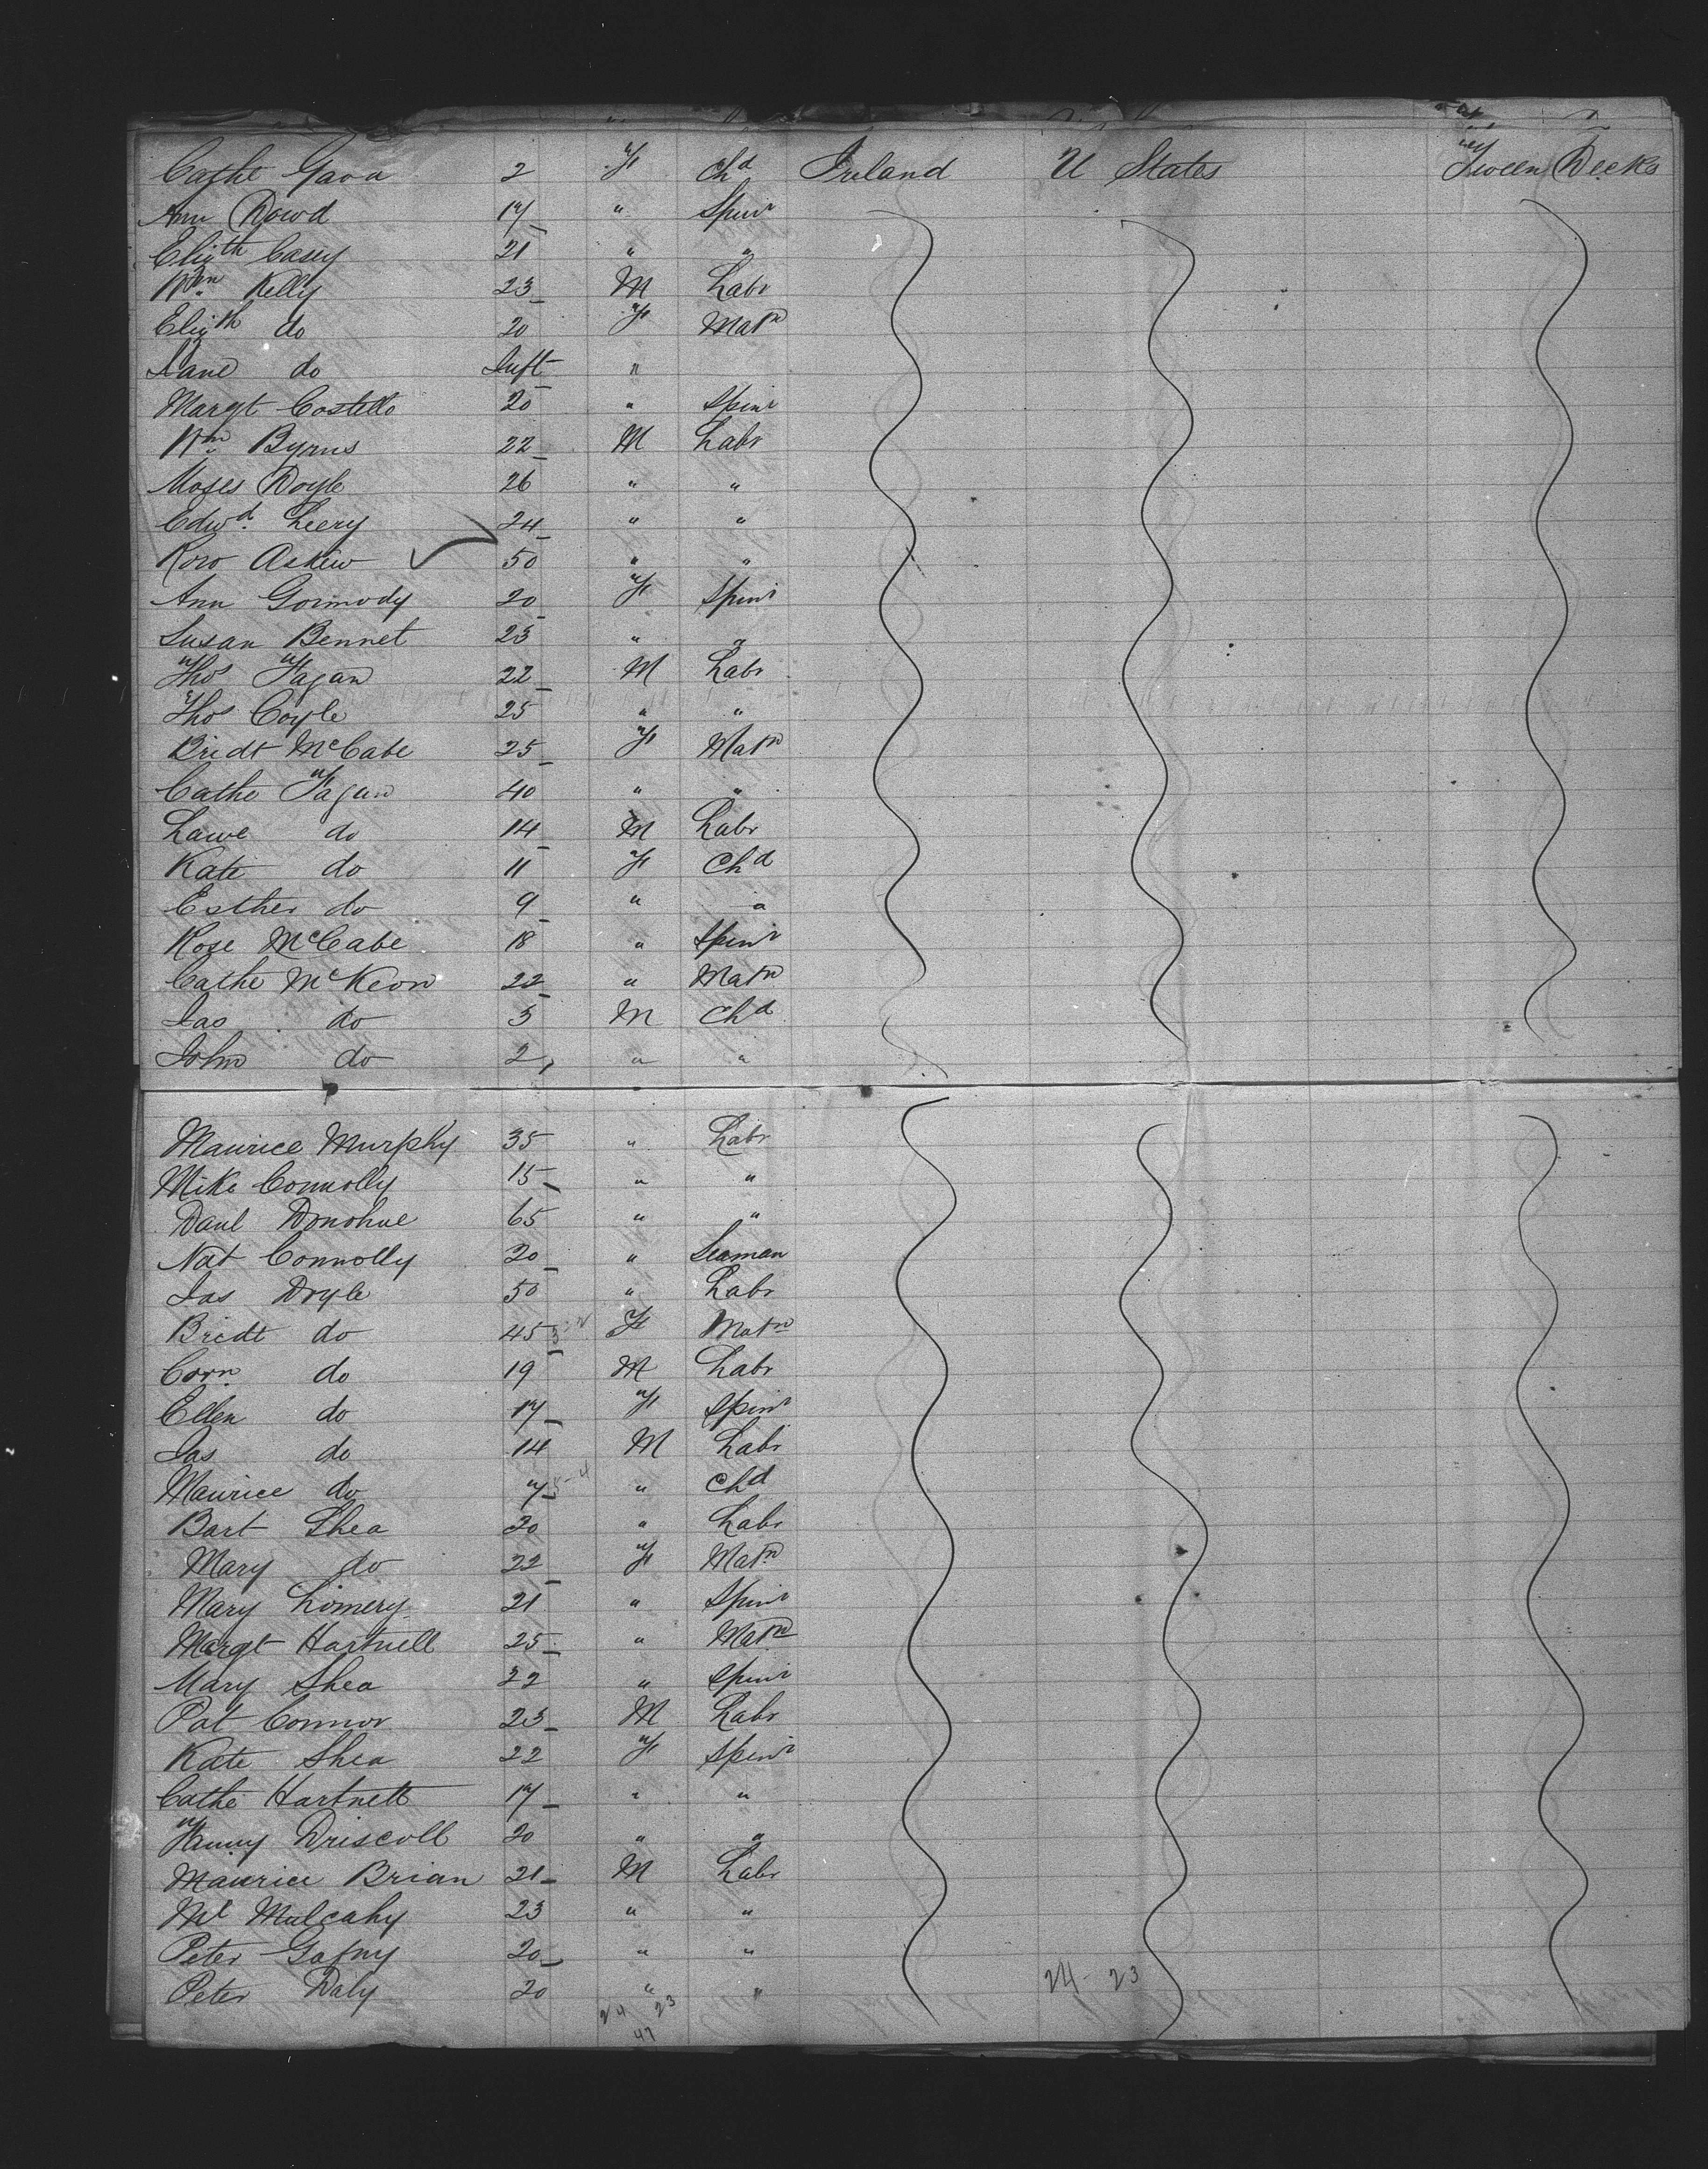 Cathe Gava 2 F Chd Ireland U States Tween Decks
Ann Dowd 17 " Spinr
Elizth Casey 21 " "
Wm Kelly 23 M Labr
Elizth do 20 F Matn
Jane do Inft "
Margt Costello 20 " Spinr
Wm Byrns 22 M Labr
Moses Doyle 26 " "
Edwd Leery 24 " "
Askew 50 " "
Ann Gormody 20 F Spinr
Susan Bennet 23 " "
Thos Fagan 22 M Labr
Thos Coyle 25 " "
Bridt McCabe 25 F Matn
Cathe Fagan 40 " "
Lawe do 14 M Labr
Kate do 11 F Chd
Esther do 9 " "
Rose McCabe 18 " Spinr
Cathe McKeon 22 " Matn
Jas do 3 M Chd
John do 2 " "
Maurice Murphy 35 " Labr
Mike Connolly 15 " "
Danl Donohue 65 " "
Nat Connolly 20 " Seaman
Jas Doyle 50 " Labr
Bridt do 45 F Matn
Corn. do 19 M Labr
Ellen do 17 F Spinr
Jas do 14 M Labr
Maurice do 7 " Chd
Bart Shea 20 " Labr
Mary do 22 F Matn
Mary Limery 21 " Spinr
Margt Hartnell 25 " Matn
Mary Shea 22 " Spinr
Pat Connor 23 M Labr
Kate Shea 22 F Spinr
Cathe Hartnett 17 " "
Driscoll 20 " "
Maurice Brian 21 M Labr
Ml Mulcahy 23 " "
Peter Gafny 20 " "
Peter Daly 20 " " 24 - 23
24 23
47